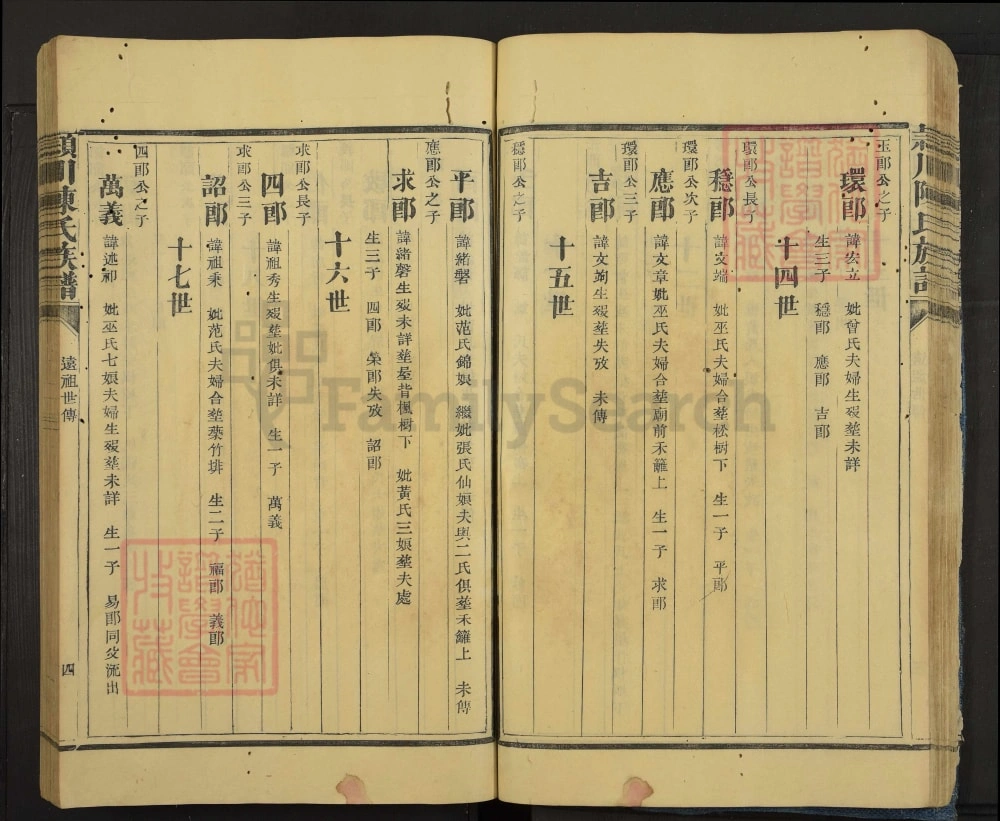 玉郎公之子
環郎 諱宏立 妣曾氏夫婦生殁塟未詳
生三子 穩郎 應郎 吉郎
十四世
環郎公長子
穩郎 諱文端 妣巫氏夫婦合塟松樹下 生一子 平郎
環郎公次子
應郎 諱文章妣巫氏夫婦合塟廟前禾籬上 生一子 求郎
環郎公三子
吉郎 諱文絢生殁塟失攷 未傳
十五世
穩郎公之子
平郎 諱緒磐 妣范氏錦娘 繼妣張氏仙娘夫與二氏俱塟禾籬上 未傳
應郎公之子
求郎 諱緒磬生殁未詳塟屋背楓樹下 妣黃氏三娘塟夫處
生三子 四郎 榮郎失攷 詔郎
十六世
求郎公長子
四郎 諱祖秀生殁塟妣俱未詳 生一子 萬義
求郎公三子
詔郎 諱祖秉 妣范氏夫婦合塟藥竹排 生二子 福郎 義郎
十七世
四郎公之子
萬義 諱述祁 妣巫氏七娘夫婦生殁塟未詳 生一子 易郎同父流出
潁川陳氏族譜
遠祖世傳
四
FamilySearch